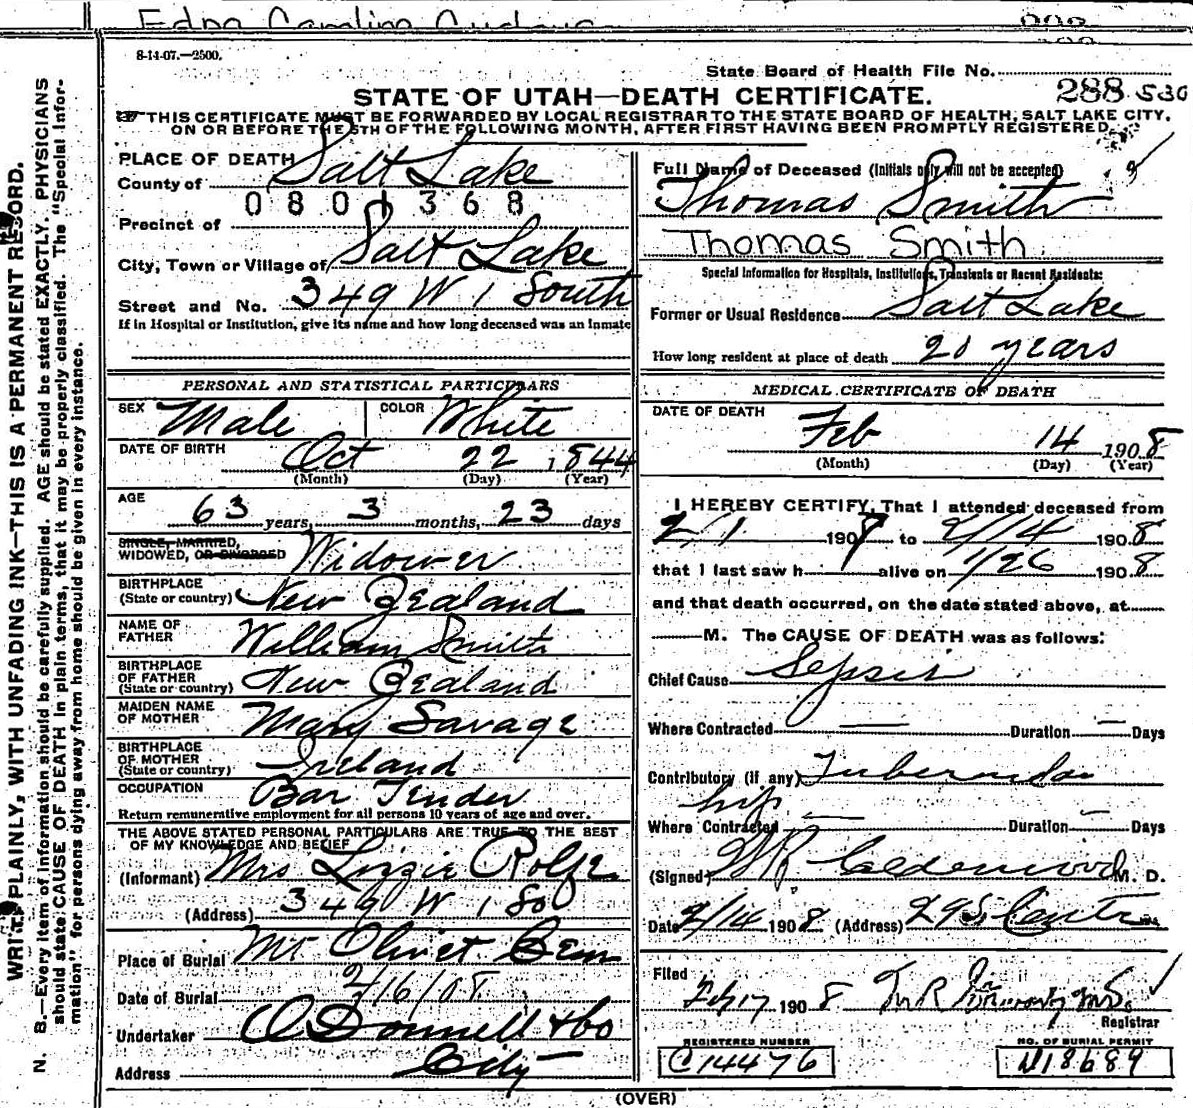 8-14-07.—2500.
State Board of Health File No.
288 530
STATE OF UTAH—DEATH CERTIFICATE.
THIS CERTIFICATE MUST BE FORWARDED BY LOCAL REGISTRAR TO THE STATE BOARD OF HEALTH, SALT LAKE CITY,
ON OR BEFORE THE 5TH OF THE FOLLOWING MONTH, AFTER FIRST HAVING BEEN PROMPTLY REGISTERED.
WRITE PLAINLY, WITH UNFADING INK—THIS IS A PERMANENT RECORD.
N. B.—Every item of information should be carefully supplied. AGE should be stated EXACTLY. PHYSICIANS
should state CAUSE OF DEATH in plain terms, that it may be properly classified. The "Special Infor-
mation" for persons dying away from home should be given in every instance.
PLACE OF DEATH
County of Salt Lake
0801368
Precinct of
City, Town or Village of Salt Lake
Street and No. 349 W 1 South
If in Hospital or Institution, give its name and how long deceased was an inmate
PERSONAL AND STATISTICAL PARTICULARS
SEX Male COLOR White
DATE OF BIRTH Oct 22, 1844
(Month) (Day) (Year)
AGE 63 years, 3 months, 23 days
SINGLE, MARRIED,
WIDOWED, OR DIVORCED Widower
BIRTHPLACE
(State or country) New Zealand
NAME OF
FATHER William Smith
BIRTHPLACE
OF FATHER
(State or country) New Zealand
MAIDEN NAME
OF MOTHER Mary Savage
BIRTHPLACE
OF MOTHER
(State or country) Ireland
OCCUPATION Bar Tender
Return remunerative employment for all persons 10 years of age and over.
THE ABOVE STATED PERSONAL PARTICULARS ARE TRUE TO THE BEST
OF MY KNOWLEDGE AND BELIEF
(Informant) Mrs Lizzie Rolfe
(Address) 349 W 1 So
Place of Burial Mt Olivet Cem
Date of Burial 2/16/08
Undertaker O'Donnell & Co
Address City
Full Name of Deceased (Initials only will not be accepted)
Thomas Smith
Thomas Smith
Special Information for Hospitals, Institutions, Transients or Recent Residents:
Former or Usual Residence Salt Lake
How long resident at place of death 20 years
MEDICAL CERTIFICATE OF DEATH
DATE OF DEATH
Feb 14 1908
(Month) (Day) (Year)
I HEREBY CERTIFY, That I attended deceased from
2/1 1908 to 2/14 1908
that I last saw h alive on 1/26 1908
and that death occurred, on the date stated above, at
M. The CAUSE OF DEATH was as follows:
Chief Cause Sepsis
Where Contracted — Duration — Days
Contributory (if any) Tubercular
hip
Where Contracted — Duration — Days
(Signed) Calderwood M. D.
Date 2/14 1908 (Address)
Filed
Feb 17 1908
Registrar
REGISTERED NUMBER
C14476
NO. OF BURIAL PERMIT
N18689
(OVER)